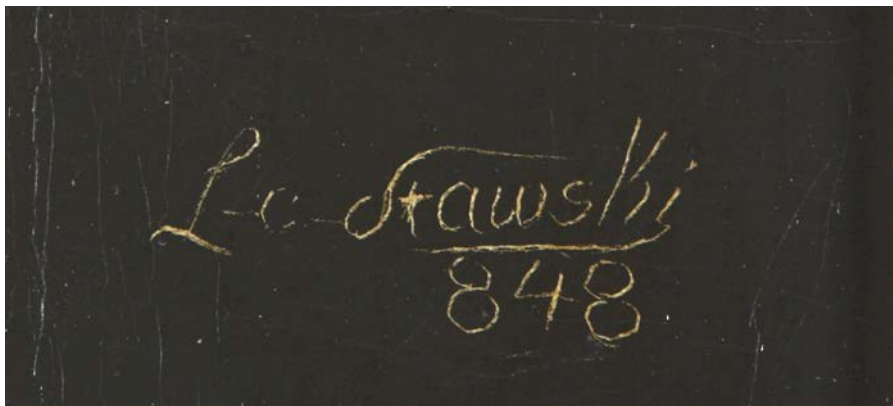 L-c Stawski
848